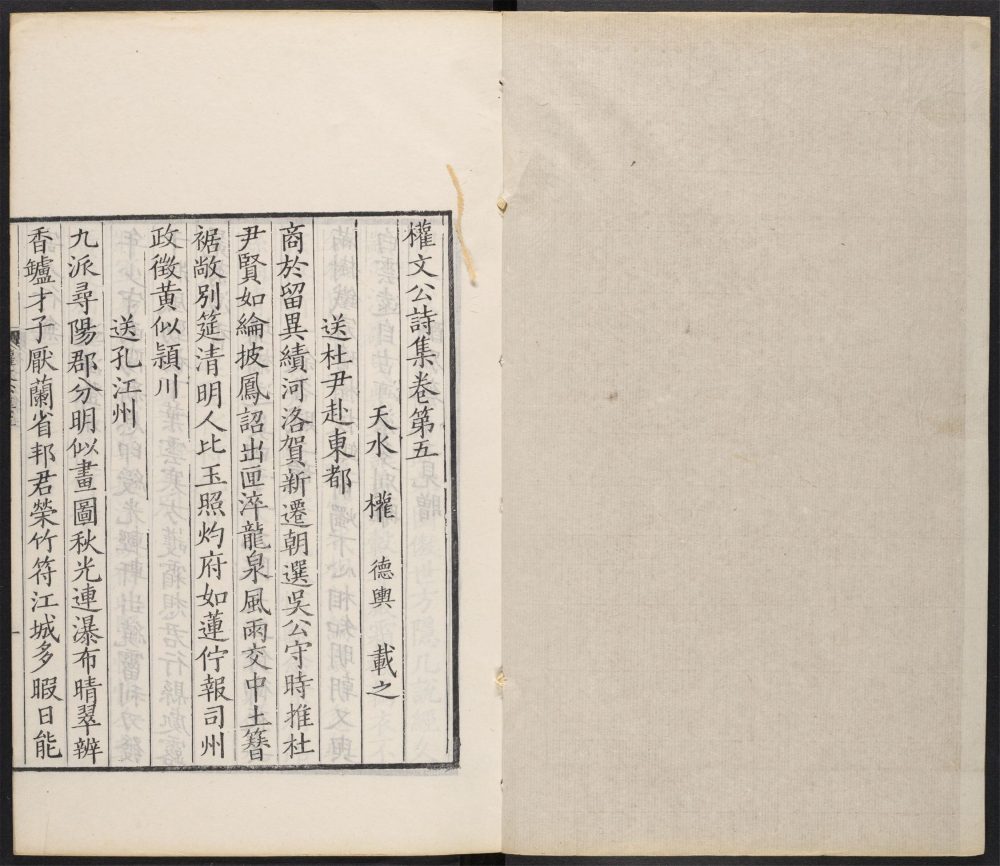 權文公詩集卷第五
天水 權 德輿 載之
送杜尹赴東都
商於留異績河洛賀新遷朝選吳公守時推杜
尹賢如綸披鳳詔出匣淬龍泉風雨交中土簪
裾敞別筵清明人比玉照灼府如蓮佇報司州
政徵黃似潁川
送孔江州
九派尋陽郡分明似畫圖秋光連瀑布晴翠辨
香鑪才子厭蘭省邦君榮竹符江城多暇日能
一